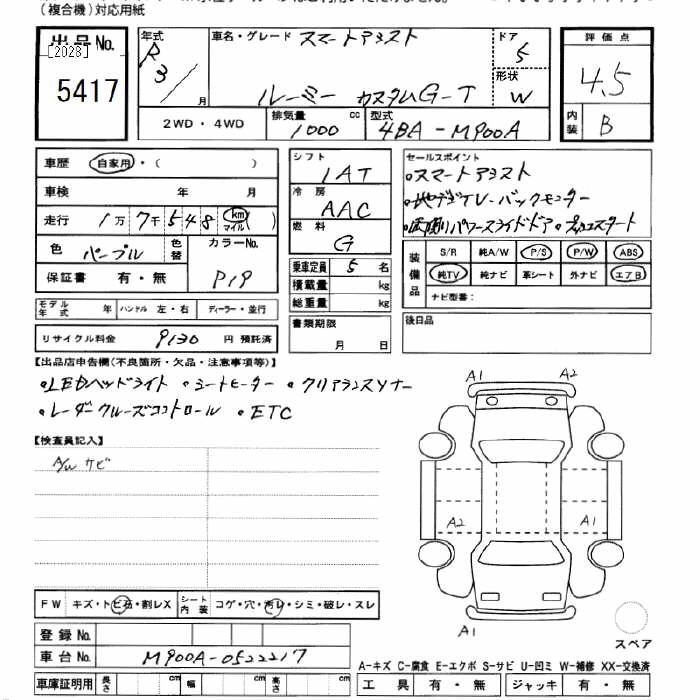 (複合機)対応用紙
出品No.
[2028]
5417
年式
R3
月
車名・グレード スマートアシスト
ルーミー カスタムG-T
ドア
5
形状
W
評価点
4.5
内装
B
2WD・4WD
排気量 cc
1000
型式
4BA-M900A
車歴 自家用・( )
車検 年 月
走行 1万7千548 km マイル ( )
色 パープル 色替 カラーNo.
P19
保証書 有・無
モデル年式 年 ハンドル 左・右 ディーラー・並行
リサイクル料金 9130 円 預託済
シフト
IAT
冷房
AAC
燃料
G
乗車定員 5 名
積載量 kg
総重量 kg
書類期限
月 日
セールスポイント
・スマートアシスト
・地デジTV・バックモニター
・両側パワースライドドア・プッシュスタート
装備品
S/R 純A/W P/S P/W ABS
純TV 純ナビ 革シート 外ナビ エアB
ナビ型番:
後日品
【出品店申告欄(不良箇所・欠品・注意事項等)】
・LEDヘッドライト ・シートヒーター ・クリアランスソナー
・レーダークルーズコントロール ・ETC
【検査員記入】
A/W サビ
A1 A2
A2 A1
A1
スペア
FW キズ・トビ石・割レX シート内装 コゲ・穴・汚レ・シミ・破レ・スレ
登録No.
車台No. M900A-0522217
車庫証明用 長さ cm 幅 cm 高さ cm
A-キズ C-腐食 E-エクボ S-サビ U-凹ミ W-補修 XX-交換済
工具 有・無 ジャッキ 有・無